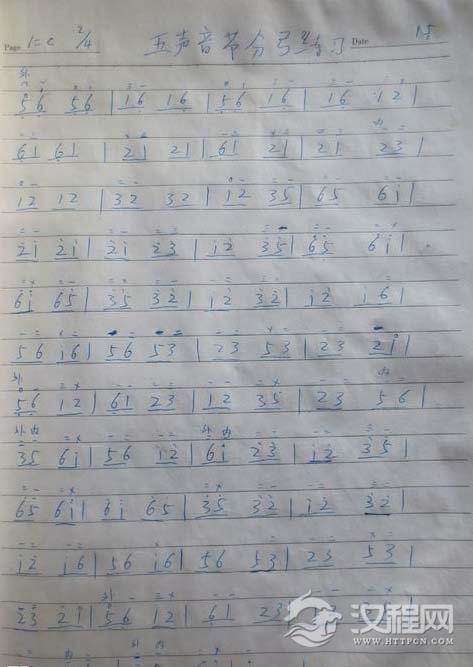 Page 1=C 2/4 五声音节分弓练习 Date 15
外
56 56 | 16 16 | 56 16 | 16 12 |
内
61 61 | 21 21 | 61 21 | 21 23 |
12 12 | 32 32 | 12 35 | 65 6i |
2̇i 2̇i | 2̇i 2̇3̇ | i2̇ 3̇5̇ | 6̇5̇ 6i |
6i 65 | 35 32 | i2̇ 3̇2̇ | i2̇ i6 |
56 i6 | 56 53 | 23 53 | 23 21 |
外 内
56 12 | 61 23 | 12 35 | 23 56 |
外 内 外 内
35 6i | 56 i2̇ | 6i 2̇3̇ | i2̇ 3̇5̇ |
65 6i | 6i 65 | 3̇5̇ 3̇2̇ | i2̇ 3̇2̇ |
i2̇ i6 | 56 i6 | 56 53 | 2̇3̇ 5̇3̇ |
外
2̇3̇ 2̇i | 56 12 | 61 23
汉程网
WWW.HTTPCN.COM